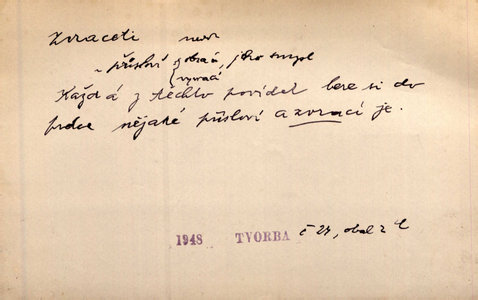 zvraceti
~ přísloví obrací, jeho smysl
vyvrací
Každá z těchto povídek bere si do
práce nějaké přísloví a zvrací je.
1948 TVORBA č 27, obal 2